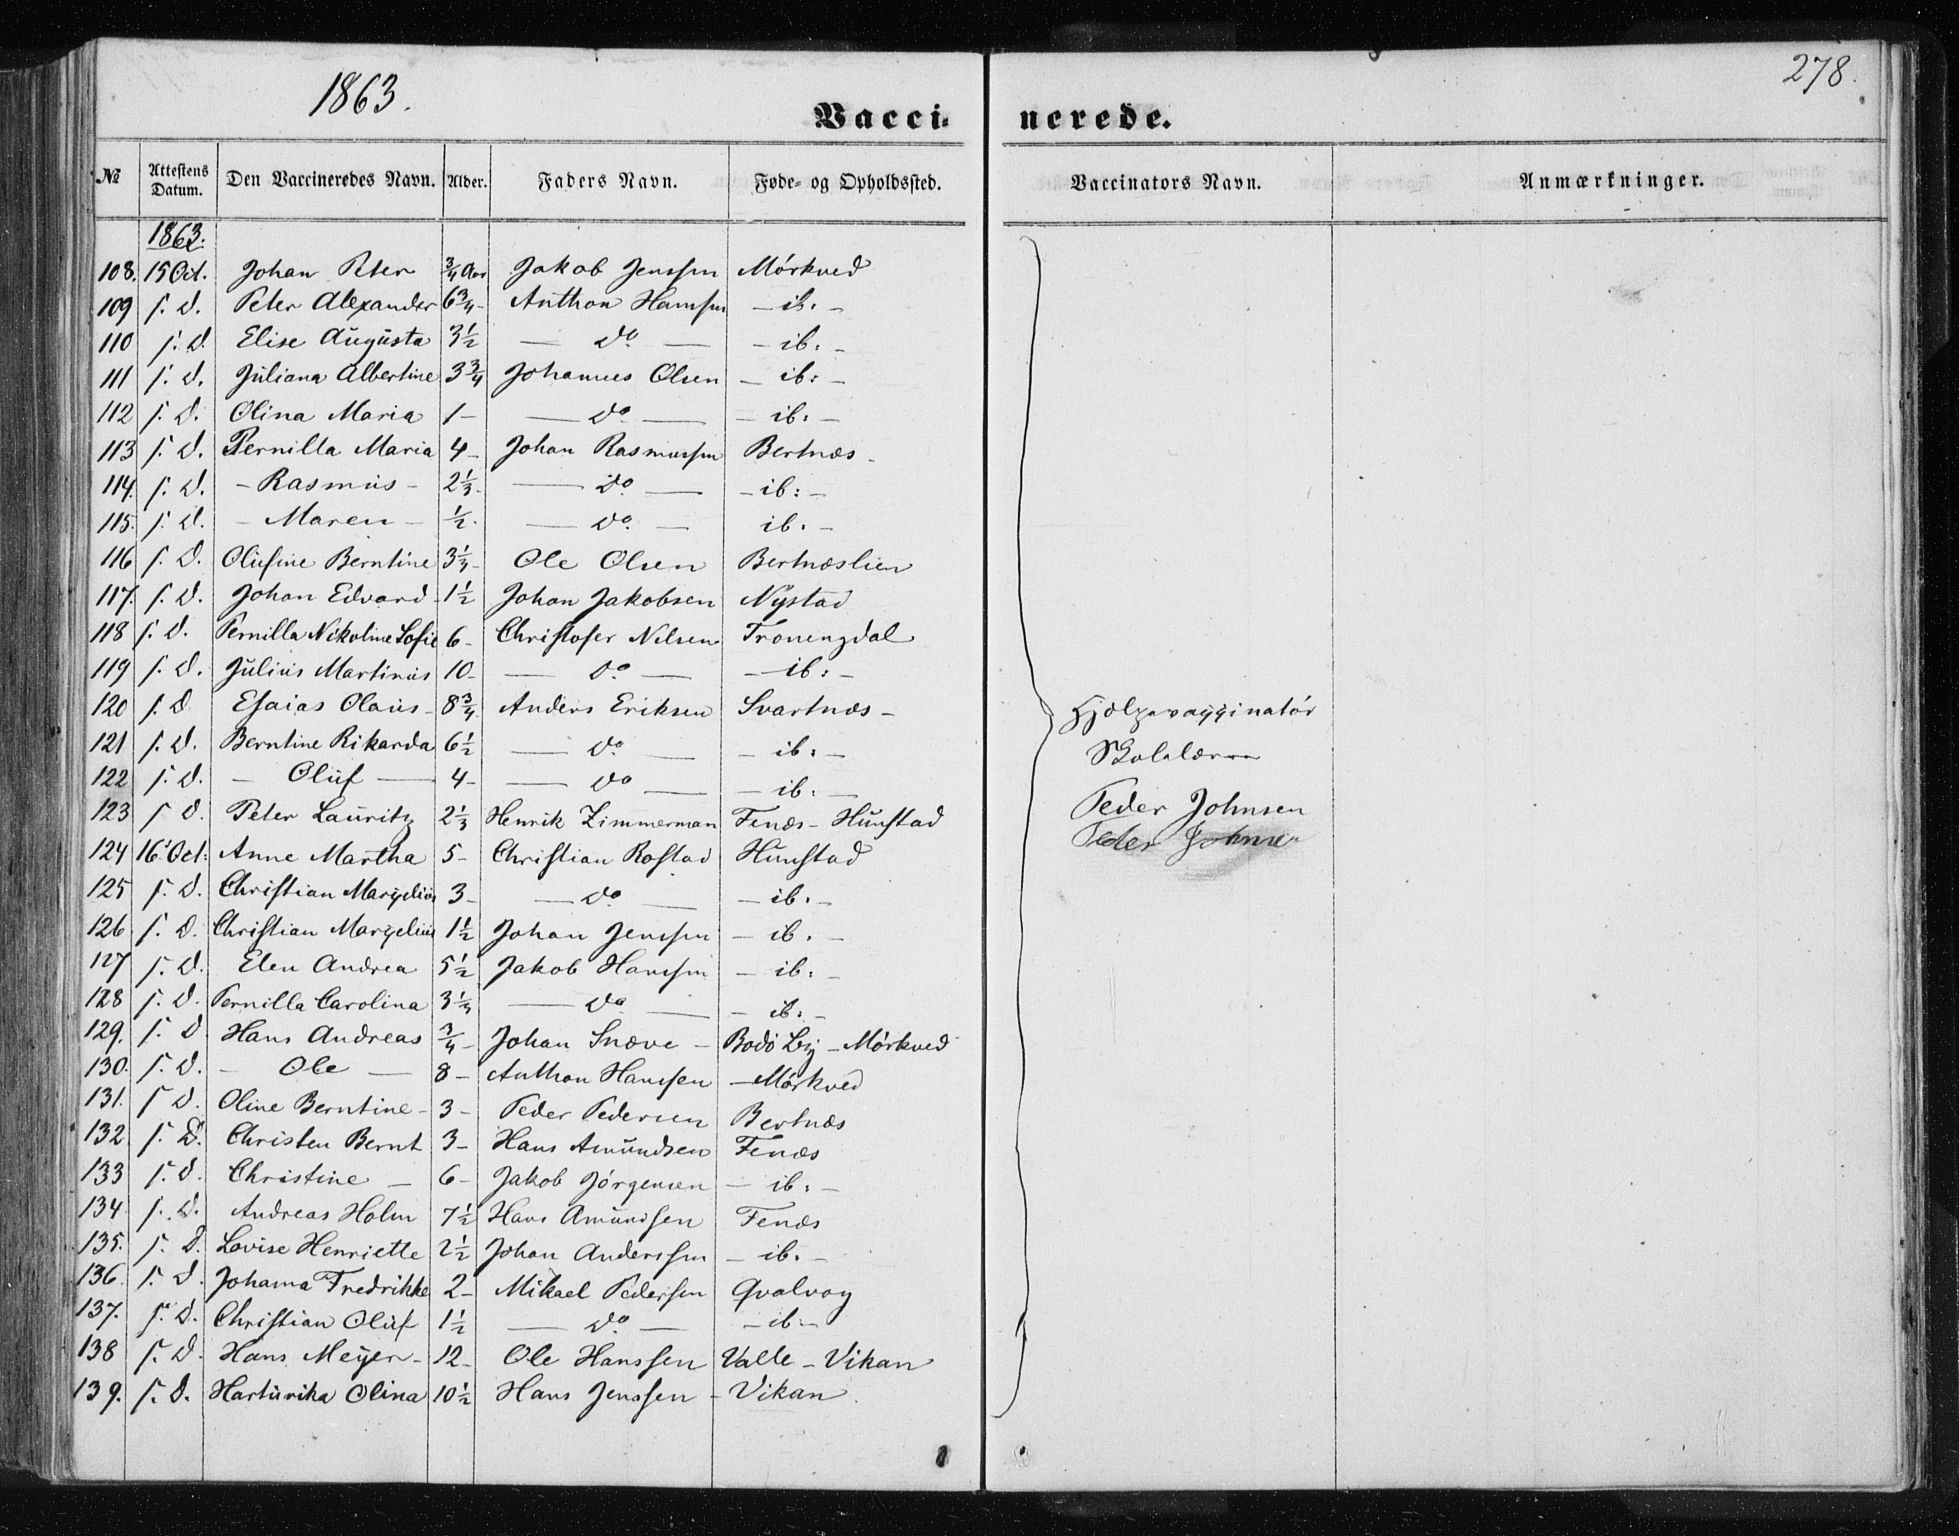 1863.
278.
Vacci- nerede.
№ Attestens Datum. Den Vaccineredes Navn. Alder. Faders Navn. Føde- og Opholdssted. Vaccinators Navn. Anmærkninger.
1863.
108. 15 Oct. Johan Peter 3/4 Aar Jakob Jenssen Mórkved
109 s. D. Peter Alexander 6 3/4 - Anthon Hanssen - ib: -
110 s. D. Elise Augusta 3 1/2 — Do — - ib. -
111 s. D. Juliana Albertine 3 3/4 Johannes Olsen - ib: -
112 s. D. Olina Maria 1 - — Do — - ib: -
113 s. D. Pernilla Maria 4 - Johan Rasmussen Bertnæs -
114. s. D. - Rasmus - 2 1/3 - — Do — - ib: -
115. s. D. - Maren - 1/2 - — Do. — ib. -
116 s. D. Olufine Berntine 3 1/3 - Ole Olsen Bertnæslien
117. s. D. Johan Edvard 1 1/2 Johan Jakobsen Nystad
118 s. D. Pernilla Nikoline Sofie 6 - Christofer Nilsen Tronengdal
119 s. D. Julius Martinus 10 - — Do — - ib: -
120 s. D Esaias Olaus - 8 3/4 Anders Eriksen Svartnæs -
121 s. D. Berntine Rikarda 6 1/2 — Do — - ib: -
122 s. D. — Oluf — 4 - — Do — - ib: -
123 s D. Peter Lauritz 2 1/3 Henrik Zimmerman Fenæs - Hunstad
124 16 Oct: Anne Martha 5 - Christian Rostad Hunstad
125 s. D. Christian Margelius 3 - — Do — - ib. -
126 s. D. Christian Margelius 1 1/2 Johan Jenssen - ib. -
127 s. D. Elen Andrea 5 1/2 Jakob Hanssen - ib: -
128 s. D. Pernilla Carolina 3 1/3 — Do — - ib: -
129. s. D Hans Andreas 3/4 - Johan Snæve - Bodó - Mórkved
130. s. D. — Ole — 8 - Anthon Hanssen - Mórkved
131. s D. Oline Berntine - 3 - Peder Pedersen Bertnæs
132 s. D. Christen Bernt 3 - Hans Amundsen Fenæs
133 s. D. Christine - 6 - Jakob Jórgensen - ib: -
134 s. D. Andreas Holm 7 1/2 Hans Amundsen Fenæs
135. s. D. Lovise Henriette 2 1/2 Johan Anderssen - ib. -
136. s. D. Johanna Fredrikke 2 - Mikael Pedersen Qvalvog
137. s. D. Christian Oluf 1 1/2 — Do. — - ib: -
138 s. D. Hans Meyer - 12 - Ole Hanssen Valle - Vikan
139. s. D. Harturika Olina 10 1/2 Hans Jenssen - Vikan
Hjælpevaccinatór
Skolelærer
Peder Johnsen
Peder Johnse